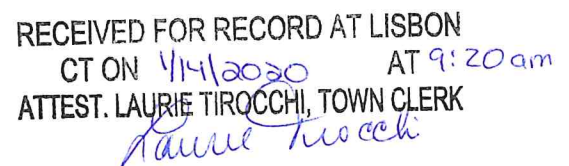 RECEIVED FOR RECORD AT LISBON
CT ON 1/14/2020 AT 9:20 am
ATTEST. LAURIE TIROCCHI, TOWN CLERK
Laurie Tirocchi